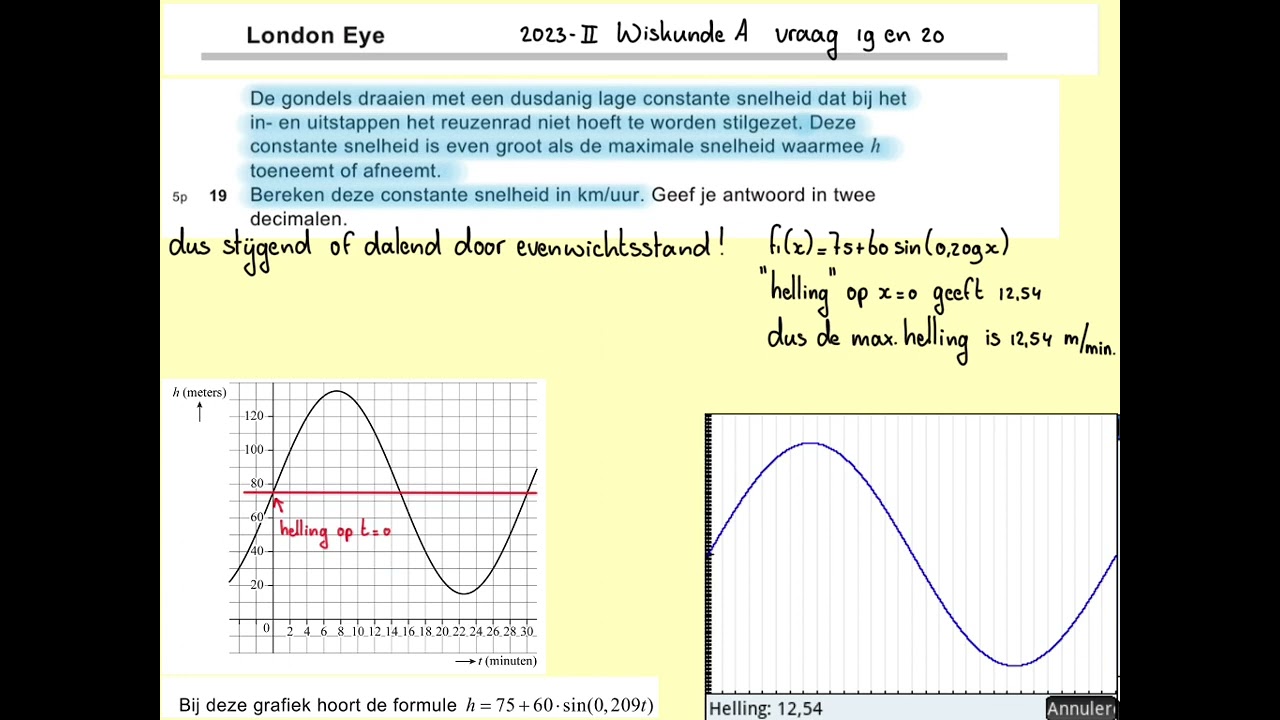 London Eye
2023-II Wiskunde A vraag 19 en 20
De gondels draaien met een dusdanig lage constante snelheid dat bij het
in- en uitstappen het reuzenrad niet hoeft te worden stilgezet. Deze
constante snelheid is even groot als de maximale snelheid waarmee h
toeneemt of afneemt.
5p 19 Bereken deze constante snelheid in km/uur. Geef je antwoord in twee
decimalen.
dus stijgend of dalend door evenwichtsstand!
f1(x)=75+60 sin(0,209x)
"helling" op x=0 geeft 12,54
dus de max. helling is 12,54 m/min.
h (meters)
120
100
80
60
40
20
helling op t=0
0 2 4 6 8 10 12 14 16 18 20 22 24 26 28 30
t (minuten)
Bij deze grafiek hoort de formule h = 75 + 60 · sin(0,209t)
Helling: 12,54
Annuler